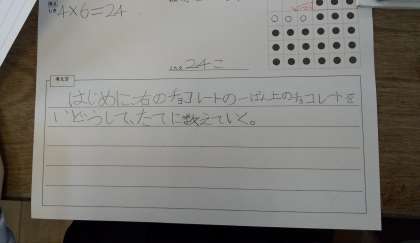 4×6=24
24こ
考え方
はじめに、右のチョコレートの一番上のチョコレートを
いどうして、たてに数えていく。